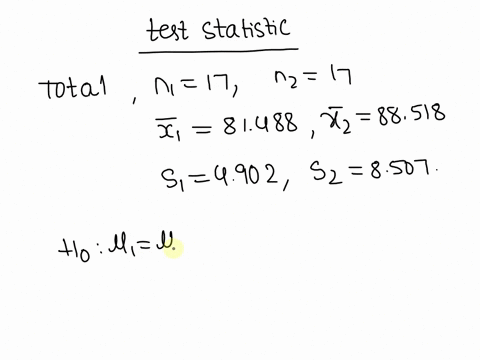 test statistic
Total , n₁ = 17, n₂ = 17
x̄₁ = 81.488 , x̄₂ = 88.518
S₁ = 4.902, S₂ = 8.507.
H₀ : μ₁ = μ